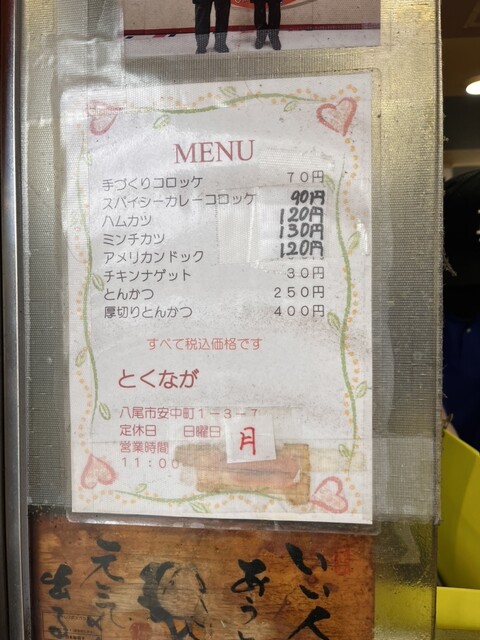 MENU
手づくりコロッケ 70円
スパイシーカレーコロッケ 90円
ハムカツ 120円
ミンチカツ 130円
アメリカンドック 120円
チキンナゲット 30円
とんかつ 250円
厚切りとんかつ 400円
すべて税込価格です
とくなが
八尾市安中町1-3-7
定休日 日曜日 月
営業時間
11:00
いい人